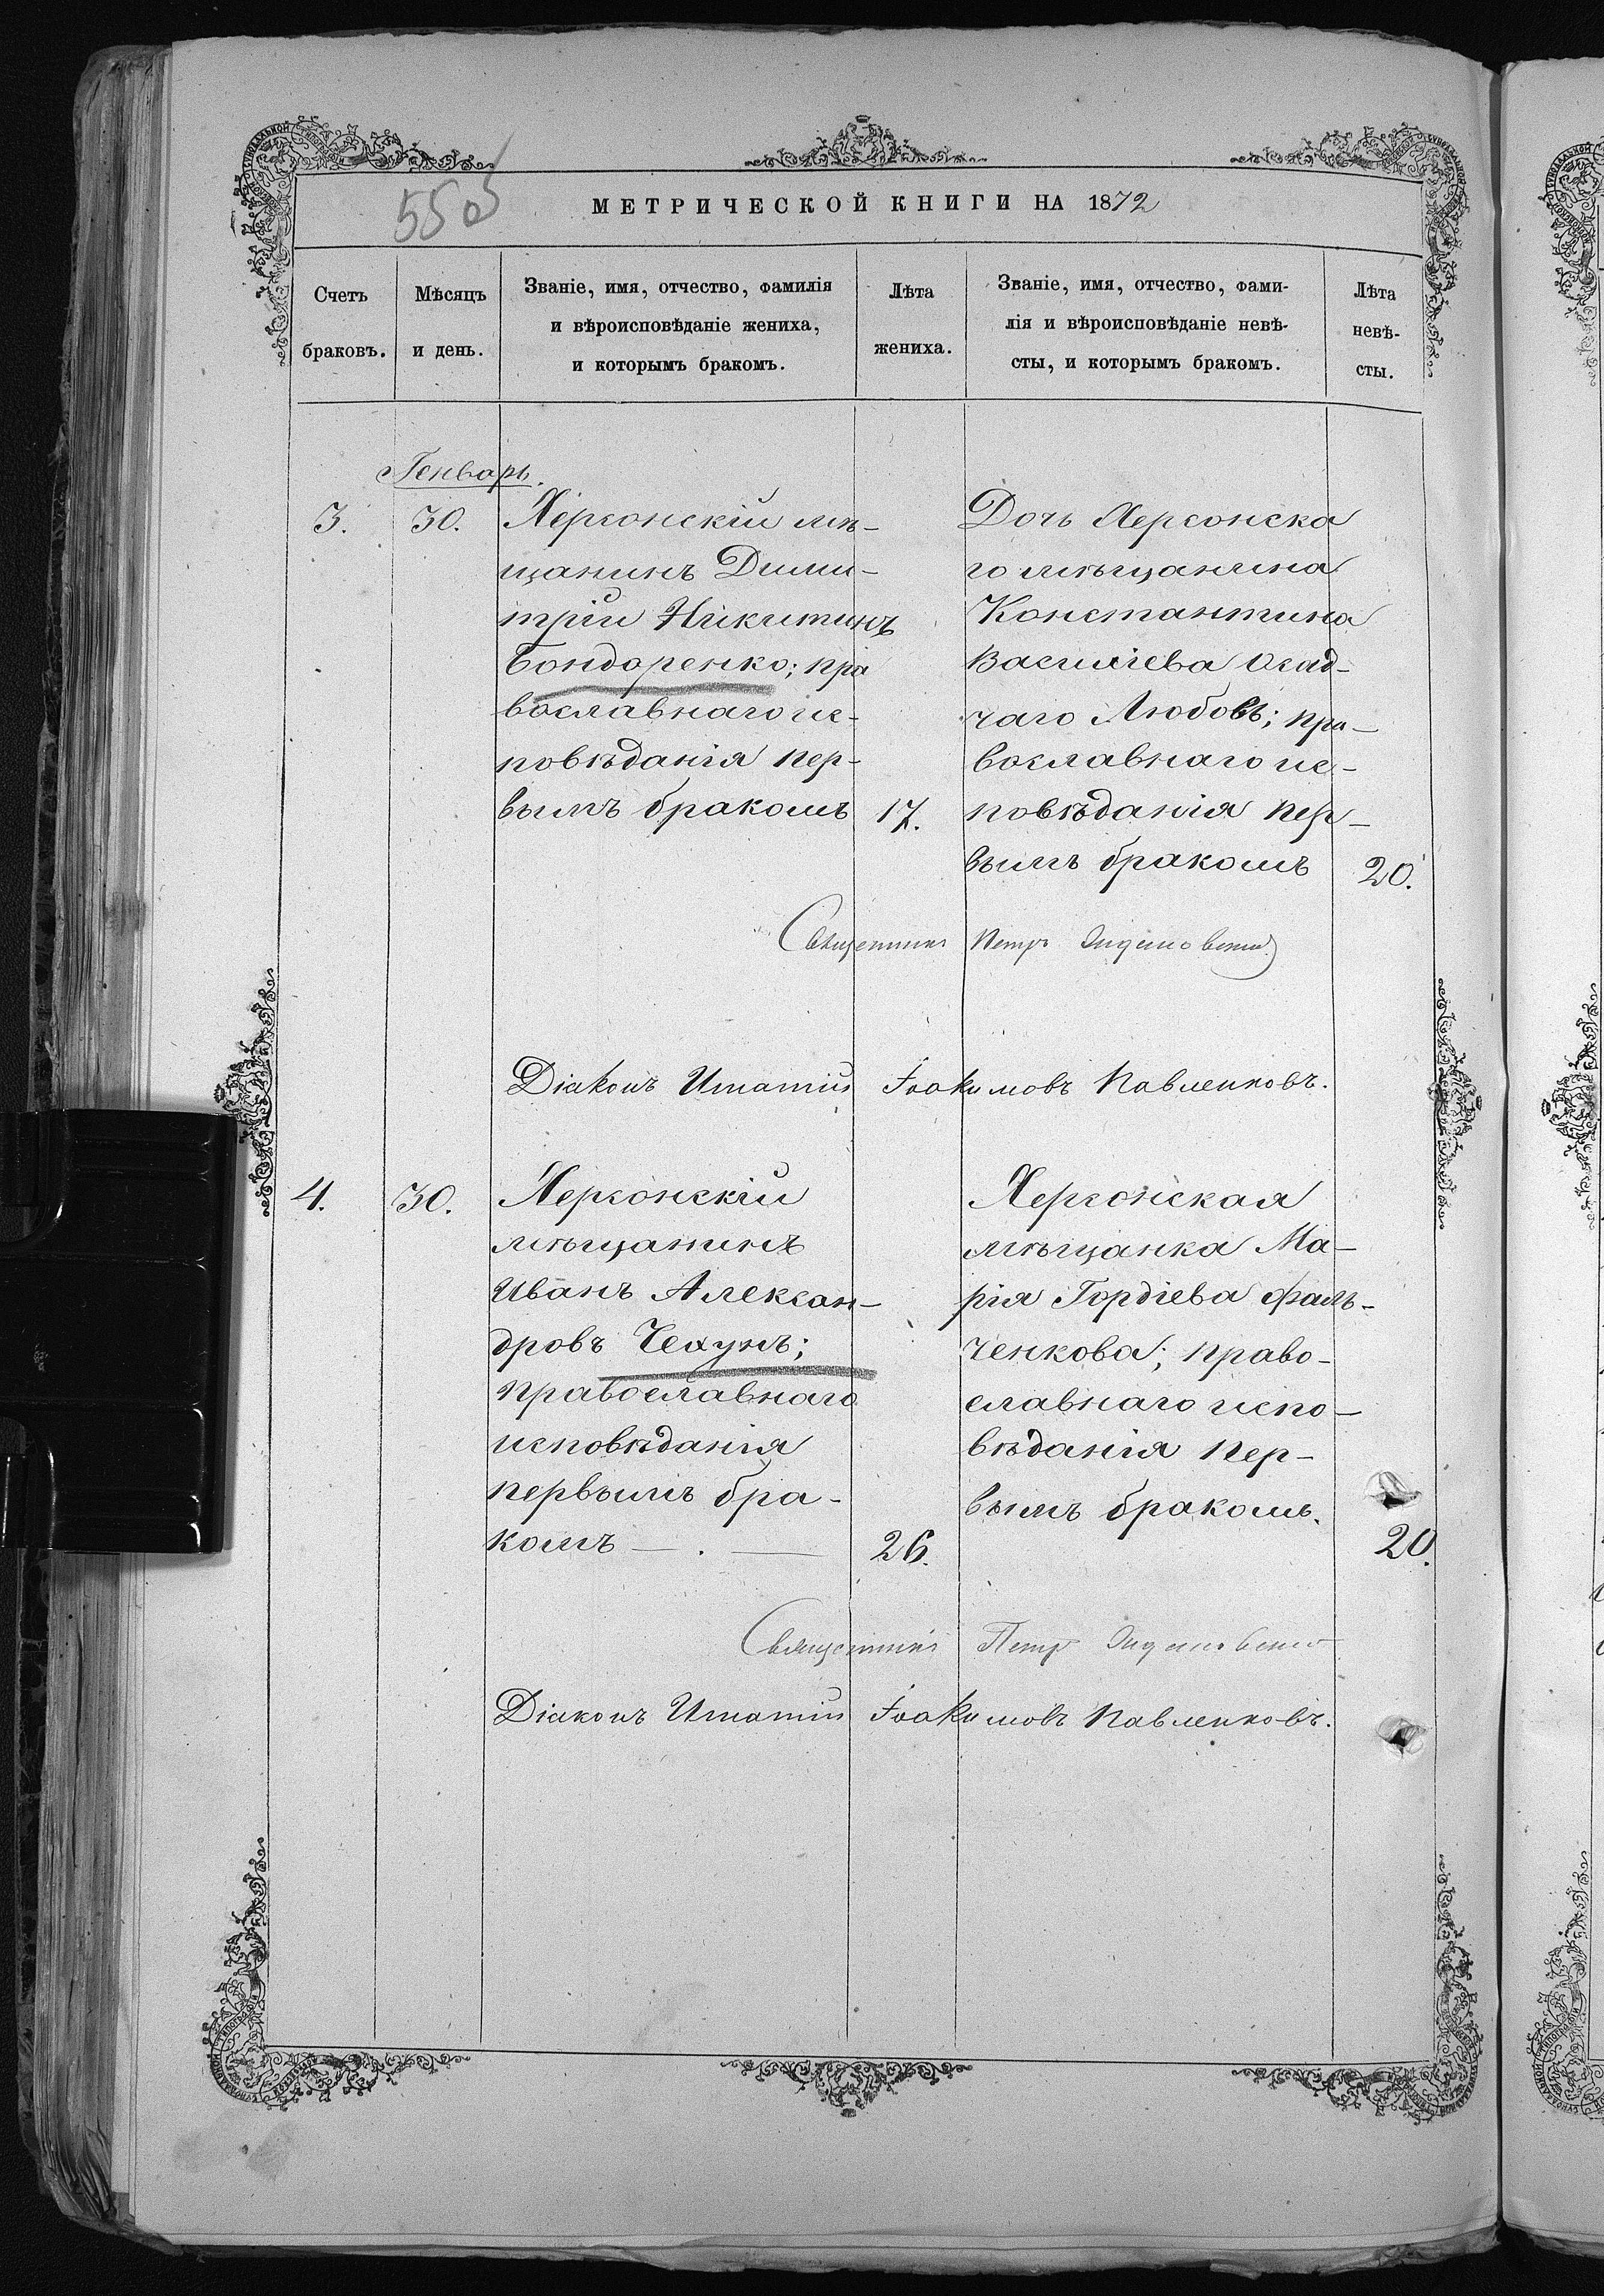 550
МЕТРИЧЕСКОЙ КНИГИ НА 1872
Счетъ браковъ.
Мѣсяцъ и день.
Званіе, имя, отчество, фамилія
и вѣроисповѣданіе жениха,
и которымъ бракомъ.
Лѣта жениха.
Званіе, имя, отчество, фами-
лія и вѣроисповѣданіе невѣ-
сты, и которымъ бракомъ.
Лѣта невѣ-
сты.
Генварь.
3. 30.
Херсонскій мѣ-
щанинъ Дими-
трій Никитинъ
Бондаренко; пра
вославнаго ис-
повѣданія пер-
вымъ бракомъ 17.
Дочь Херсонска
го мѣщанина
Константина
Василіева Осад-
чаго Любовь; пра-
вославнаго ис-
повѣданія пер-
вымъ бракомъ 20.
Священникъ Петръ
Діаконъ Игнатій Іоакимовъ Павленковъ.
4. 30.
Херсонскій
мѣщанинъ
Иванъ Алексан-
дровъ Чехунъ;
православнаго
исповѣданія
первымъ бра-
комъ — . — 26.
Херсонская
мѣщанка Ма-
рія Гордіева Фаль-
ченкова; право-
славнаго испо-
вѣданія пер-
вымъ бракомъ. 20.
Священникъ Петръ
Діаконъ Игнатій Іоакимовъ Павленковъ.